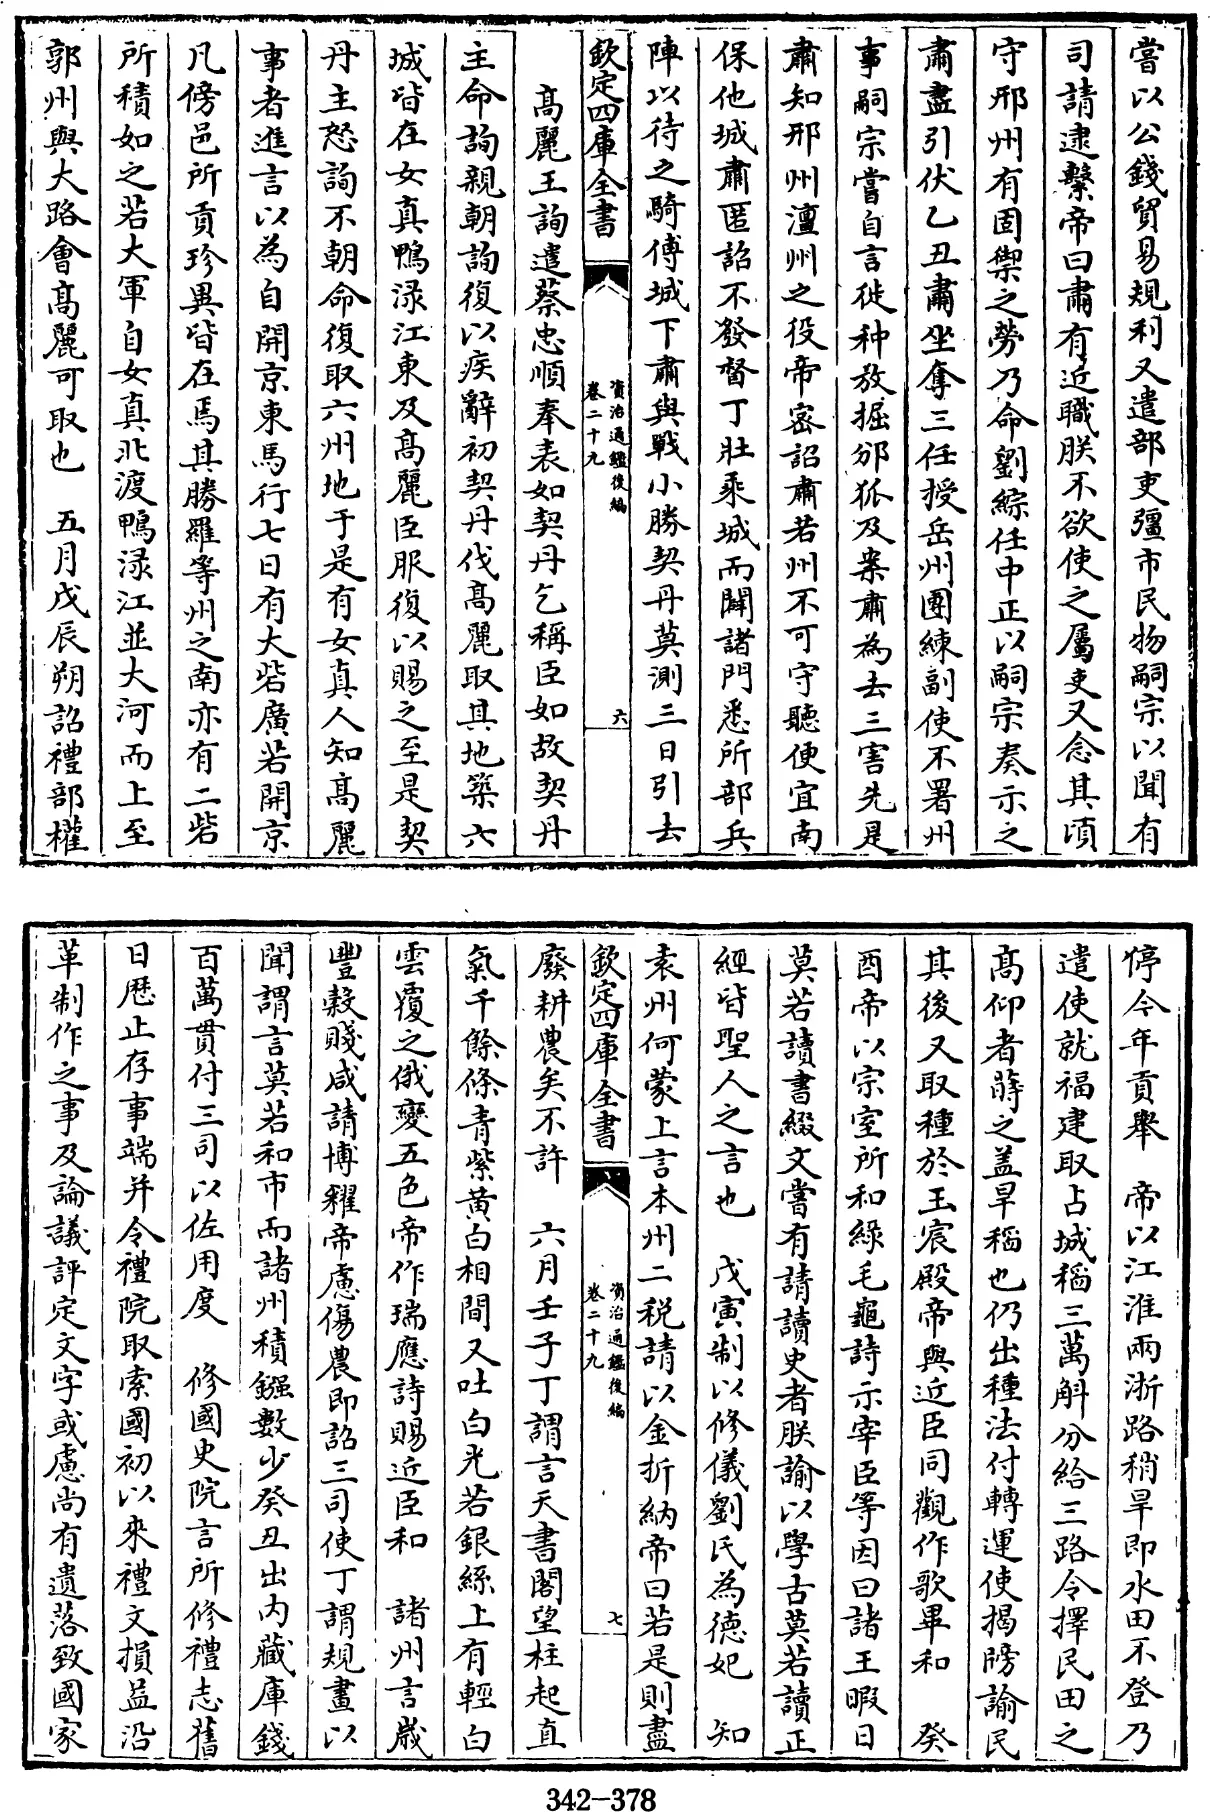 嘗以公錢貿易規利又遣部吏彊市民物嗣宗以聞有
司請逮繫帝曰肅有近職朕不欲使之屬吏又念其頃
守邢州有固禦之勞乃命劉綜任中正以嗣宗奏示之
肅盡引伏乙丑肅坐奪三任授岳州團練副使不署州
事嗣宗嘗自言徙种放掘邠狐及案肅為去三害先是
肅知邢州澶州之役帝密詔肅若州不可守聽便宜南
保他城肅匿詔不發督丁壯乘城而闢諸門悉所部兵
陣以待之騎傅城下肅與戰小勝契丹莫測三日引去
欽定四庫全書
資治通鑑後編
卷二十九
六
高麗王詢遣蔡忠順奉表如契丹乞稱臣如故契丹
主命詢親朝詢復以疾辭初契丹伐高麗取其地築六
城皆在女真鴨渌江東及高麗臣服復以賜之至是契
丹主怒詢不朝命復取六州地于是有女真人知高麗
事者進言以為自開京東馬行七日有大砦廣若開京
凡傍邑所貢珍異皆在焉其勝羅等州之南亦有二砦
所積如之若大軍自女真北渡鴨渌江並大河而上至
郭州與大路會高麗可取也 五月戊辰朔詔禮部權
停今年貢舉 帝以江淮兩浙路稍旱即水田不登乃
遣使就福建取占城稻三萬斛分給三路令擇民田之
高仰者蒔之盖旱稻也仍出種法付轉運使揭牓諭民
其後又取種於玉宸殿帝與近臣同觀作歌畢和 癸
酉帝以宗室所和綠毛龜詩示宰臣等因曰諸王暇日
莫若讀書綴文嘗有請讀史者朕諭以學古莫若讀正
經皆聖人之言也 戊寅制以修儀劉氏為德妃 知
袁州何蒙上言本州二税請以金折納帝曰若是則盡
欽定四庫全書
資治通鑑後編
卷二十九
七
廢耕農矣不許 六月壬子丁謂言天書閣望柱起直
氣千餘條青紫黄白相間又吐白光若銀絲上有輕白
雲覆之俄變五色帝作瑞應詩賜近臣和 諸州言歲
豐穀賤咸請博糴帝慮傷農即詔三司使丁謂規畫以
聞謂言莫若和市而諸州積鏹數少癸丑出内藏庫錢
百萬貫付三司以佐用度 修國史院言所修禮志舊
日歷止存事端并令禮院取索國初以來禮文損益沿
革制作之事及論議評定文字或慮尚有遺落致國家
342-378